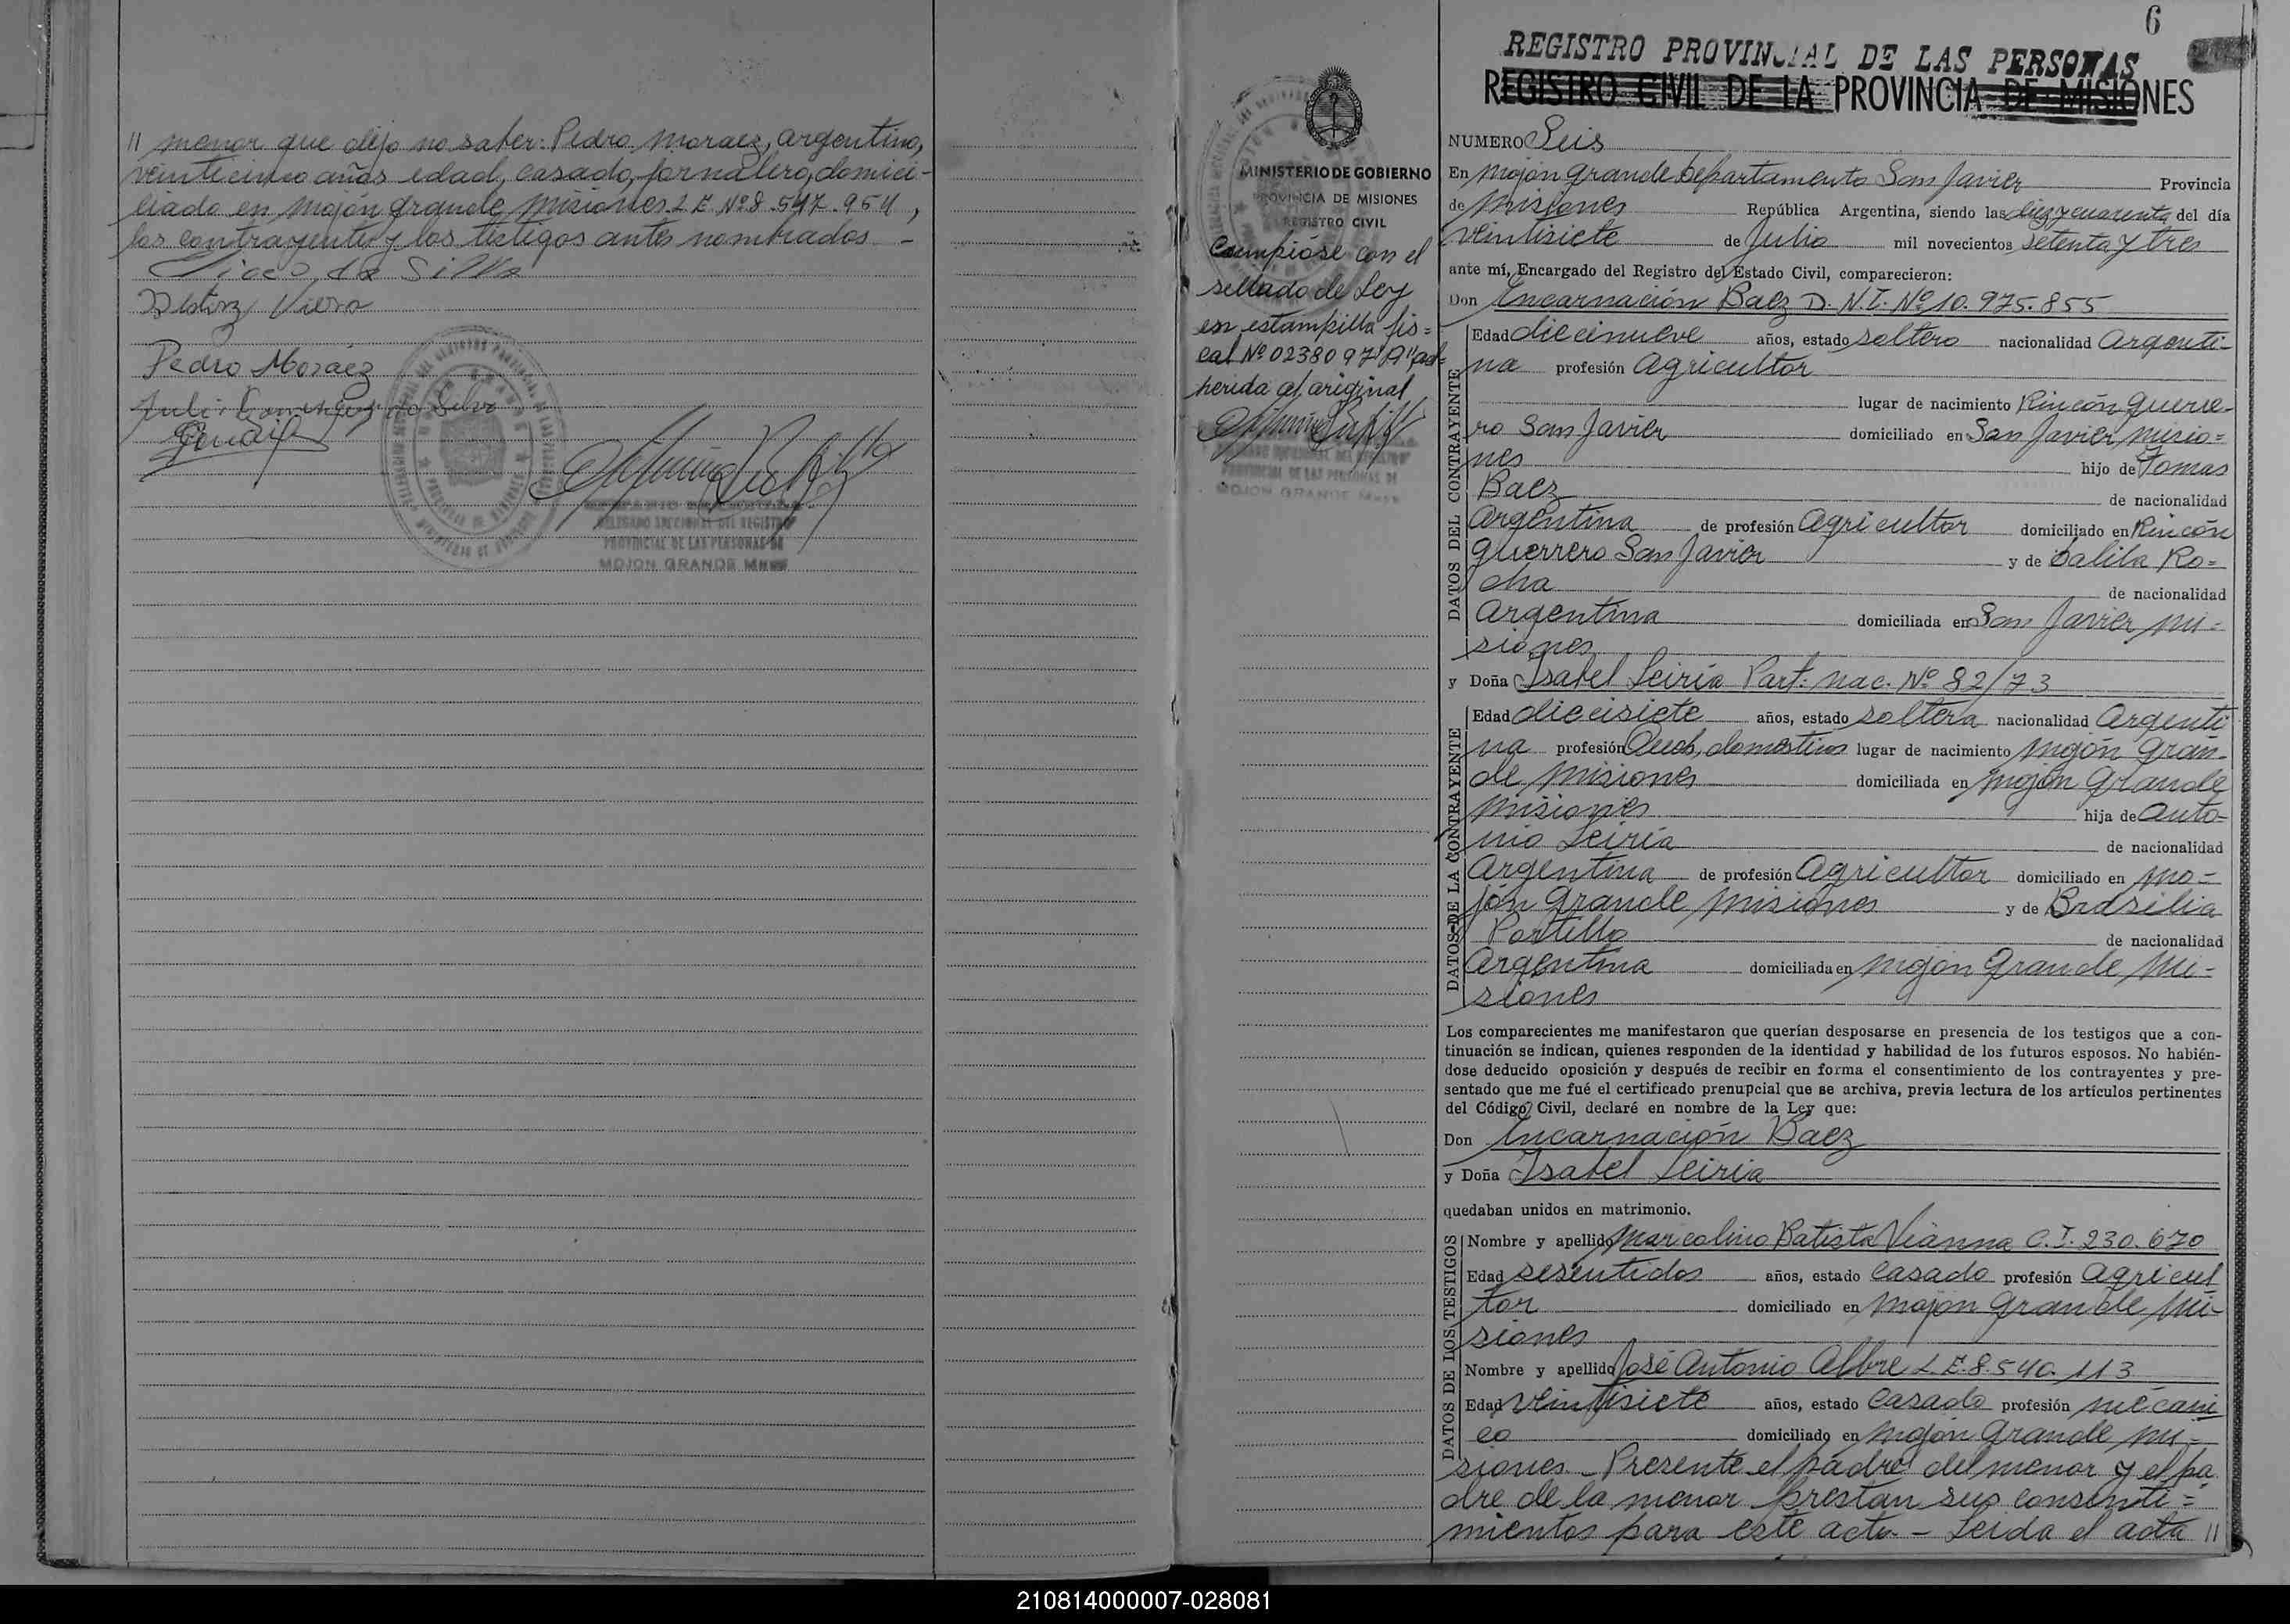 // menor que dijo no saber: Pedro Moraez, argentino,
veinticinco años edad, casado, jornalero, domici-
liado en Mojón grande, Misiones L E. Nº 8.547.954,
los contrayentes y los testigos antes nombrados. -
da Silva
Viera
Pedro Moraez
da Silva
MOJON GRANDE
6
REGISTRO PROVINCIAL DE LAS PERSONAS
REGISTRO CIVIL DE LA PROVINCIA DE MISIONES
MINISTERIO DE GOBIERNO
PROVINCIA DE MISIONES
REGISTRO CIVIL
Cumpióse con el
sellado de Ley
en estampilla fis=
cal Nº 0238097 "A" ad=
herida al original
PROVINCIAL DE LAS PERSONAS DE
MOJON GRANDE
NUMERO Seis
En Mojón grande Departamento San Javier Provincia
de Misiones República Argentina, siendo las diez y cuarenta del día
veintisiete de Julio mil novecientos setenta y tres
ante mí, Encargado del Registro del Estado Civil, comparecieron:
Don Encarnación Baez D. N. I. Nº 10.975.855
DATOS DEL CONTRAYENTE
Edad diecinueve años, estado soltero nacionalidad Argenti-
na profesión Agricultor
lugar de nacimiento Rincón Guerre-
ro San Javier domiciliado en San Javier, Misio=
nes hijo de Tomas
Baez de nacionalidad
Argentina de profesión Agricultor domiciliado en Rincón
Guerrero San Javier y de Dalila Ro=
cha de nacionalidad
Argentina domiciliada en San Javier Mi=
siones
y Doña Isabel Leiria Part. nac. Nº 82/73
DATOS DE LA CONTRAYENTE
Edad diecisiete años, estado soltera nacionalidad Argenti
na profesión Queh. domésticos lugar de nacimiento Mojón Gran-
de Misiones domiciliada en Mojón Grande
Misiones hija de Anto-
nio Leiria de nacionalidad
Argentina de profesión Agricultor domiciliado en Mo=
jón Grande Misiones y de Brasilia
Portillo de nacionalidad
Argentina domiciliada en Mojón Grande Mi-
siones
Los comparecientes me manifestaron que querían desposarse en presencia de los testigos que a con-
tinuación se indican, quienes responden de la identidad y habilidad de los futuros esposos. No habién-
dose deducido oposición y después de recibir en forma el consentimiento de los contrayentes y pre-
sentado que me fué el certificado prenupcial que se archiva, previa lectura de los artículos pertinentes
del Código Civil, declaré en nombre de la Ley que:
Don Encarnación Baez
y Doña Isabel Leiria
quedaban unidos en matrimonio.
DATOS DE LOS TESTIGOS
Nombre y apellido Marcolino Batista Vianna C. I. 230.670
Edad sesentidos años, estado casado profesión Agricul
tor domiciliado en Mojón Grande Mi-
siones
Nombre y apellido José Antonio Albre L E. 8.540.113
Edad veintisiete años, estado casado profesión mécani
co domiciliado en Mojón Grande Mi-
siones - Presente el padre del menor y el pa
dre de la menor prestan sus consenti=
mientos para este acto. - Leida el acta //
210814000007-028081